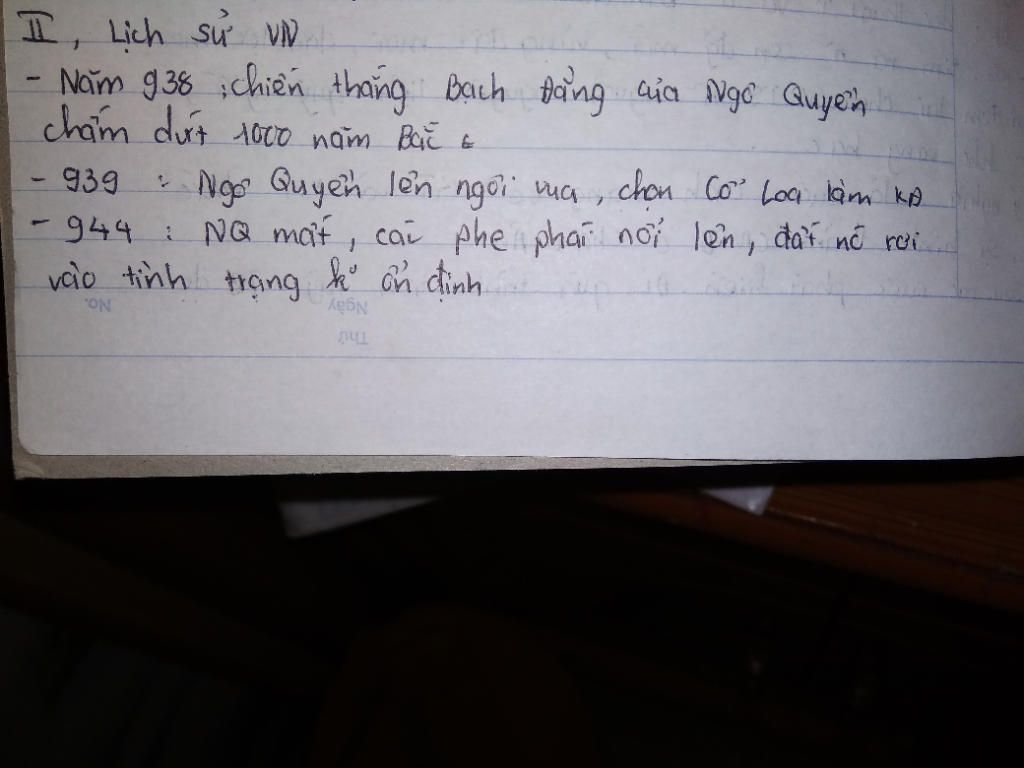 II, Lịch sử VN
- Năm 938 : chiến thắng Bạch Đằng của Ngô Quyền
chấm dứt 1000 năm Bắc t
- 939 : Ngô Quyền lên ngôi vua, chọn Cổ Loa làm KĐ
- 944 : NQ mất, các phe phái nổi lên, đất nc rơi
vào tình trạng k ổn định
No.
Ngày
Thứ